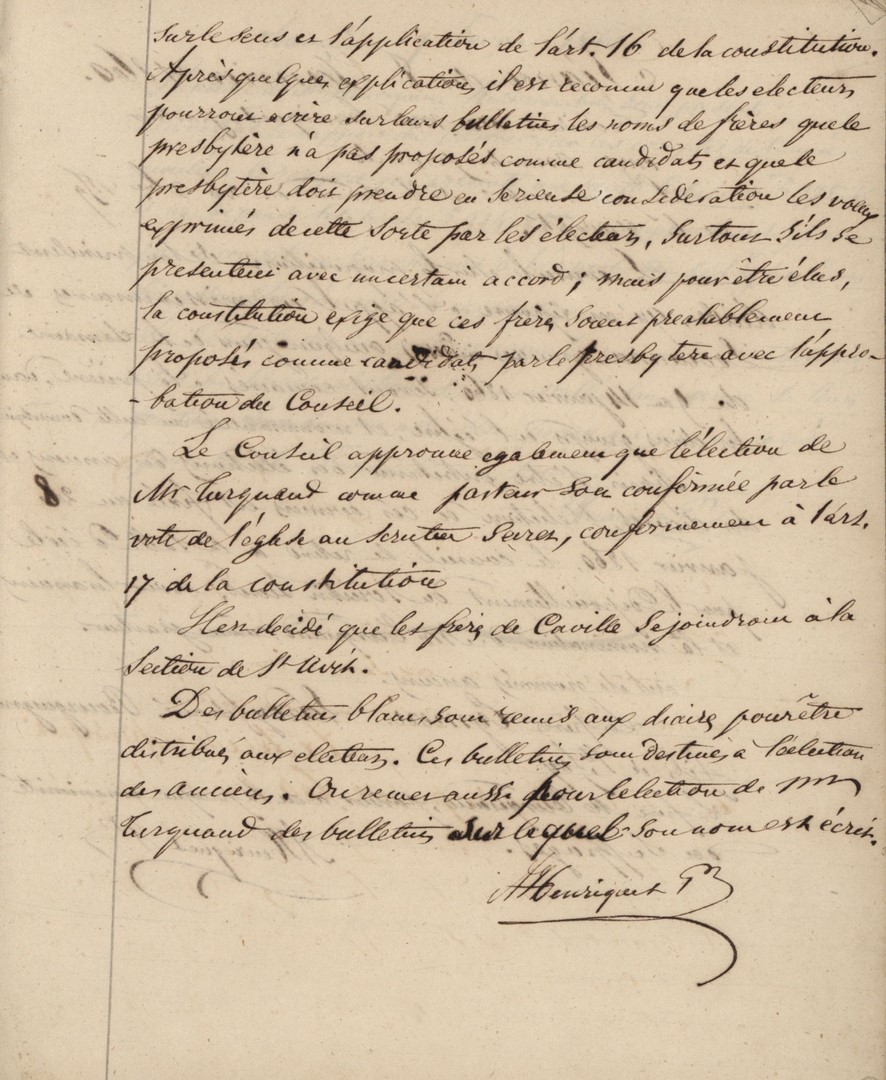 sur le sens et l'application de l'art. 16 de la constitution.
Après quelques explications il est reconnu que les electeurs
pourront ecrire sur leurs bulletins les noms de frères que le
presbytère n'a pas proposés comme candidats et que le
presbytère doit prendre en serieuse considération les voeux
exprimés de cette sorte par les électeurs, surtout s'ils se
presentent avec un certain accord; mais pour être élus,
la constitution exige que ces frères soient prealablement
proposés comme candidats par le presbytère avec l'appro-
-bation du Conseil.
Le Conseil approuve egalement que l'élection de
8
Mr Turquand comme pasteur soit confirmée par le
vote de l'église au scrutin secret, conformement à l'art.
17 de la constitution
Il est decidé que les frères de Caville se joindront à la
Section de St Avit.
Des bulletins blancs sont remis aux diacres pour être
distribués aux electeurs. Ces bulletins sont destinés à l'élection
des anciens. On remet aussi pour l'election de Mr
Turquand des bulletins sur lequel son nom est écrit.
Henriquet